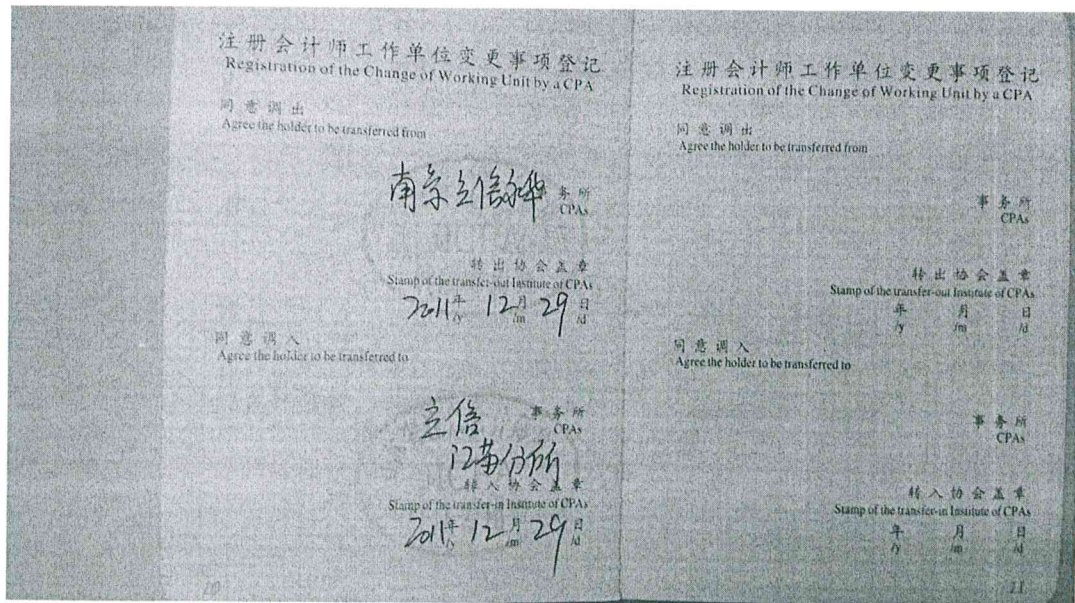 注册会计师工作单位变更事项登记
Registration of the Change of Working Unit by a CPA
同意调出
Agree the holder to be transferred from
南京立信永华 事务所
CPAs
转出协会盖章
Stamp of the transfer-out Institute of CPAs
2011年 12月 29日
/y /m /d
同意调入
Agree the holder to be transferred to
立信 事务所
CPAs
江苏分所
转入协会盖章
Stamp of the transfer-in Institute of CPAs
2011年 12月 29日
/y /m /d
10
注册会计师工作单位变更事项登记
Registration of the Change of Working Unit by a CPA
同意调出
Agree the holder to be transferred from
事务所
CPAs
转出协会盖章
Stamp of the transfer-out Institute of CPAs
年 月 日
/y /m /d
同意调入
Agree the holder to be transferred to
事务所
CPAs
转入协会盖章
Stamp of the transfer-in Institute of CPAs
年 月 日
/y /m /d
11